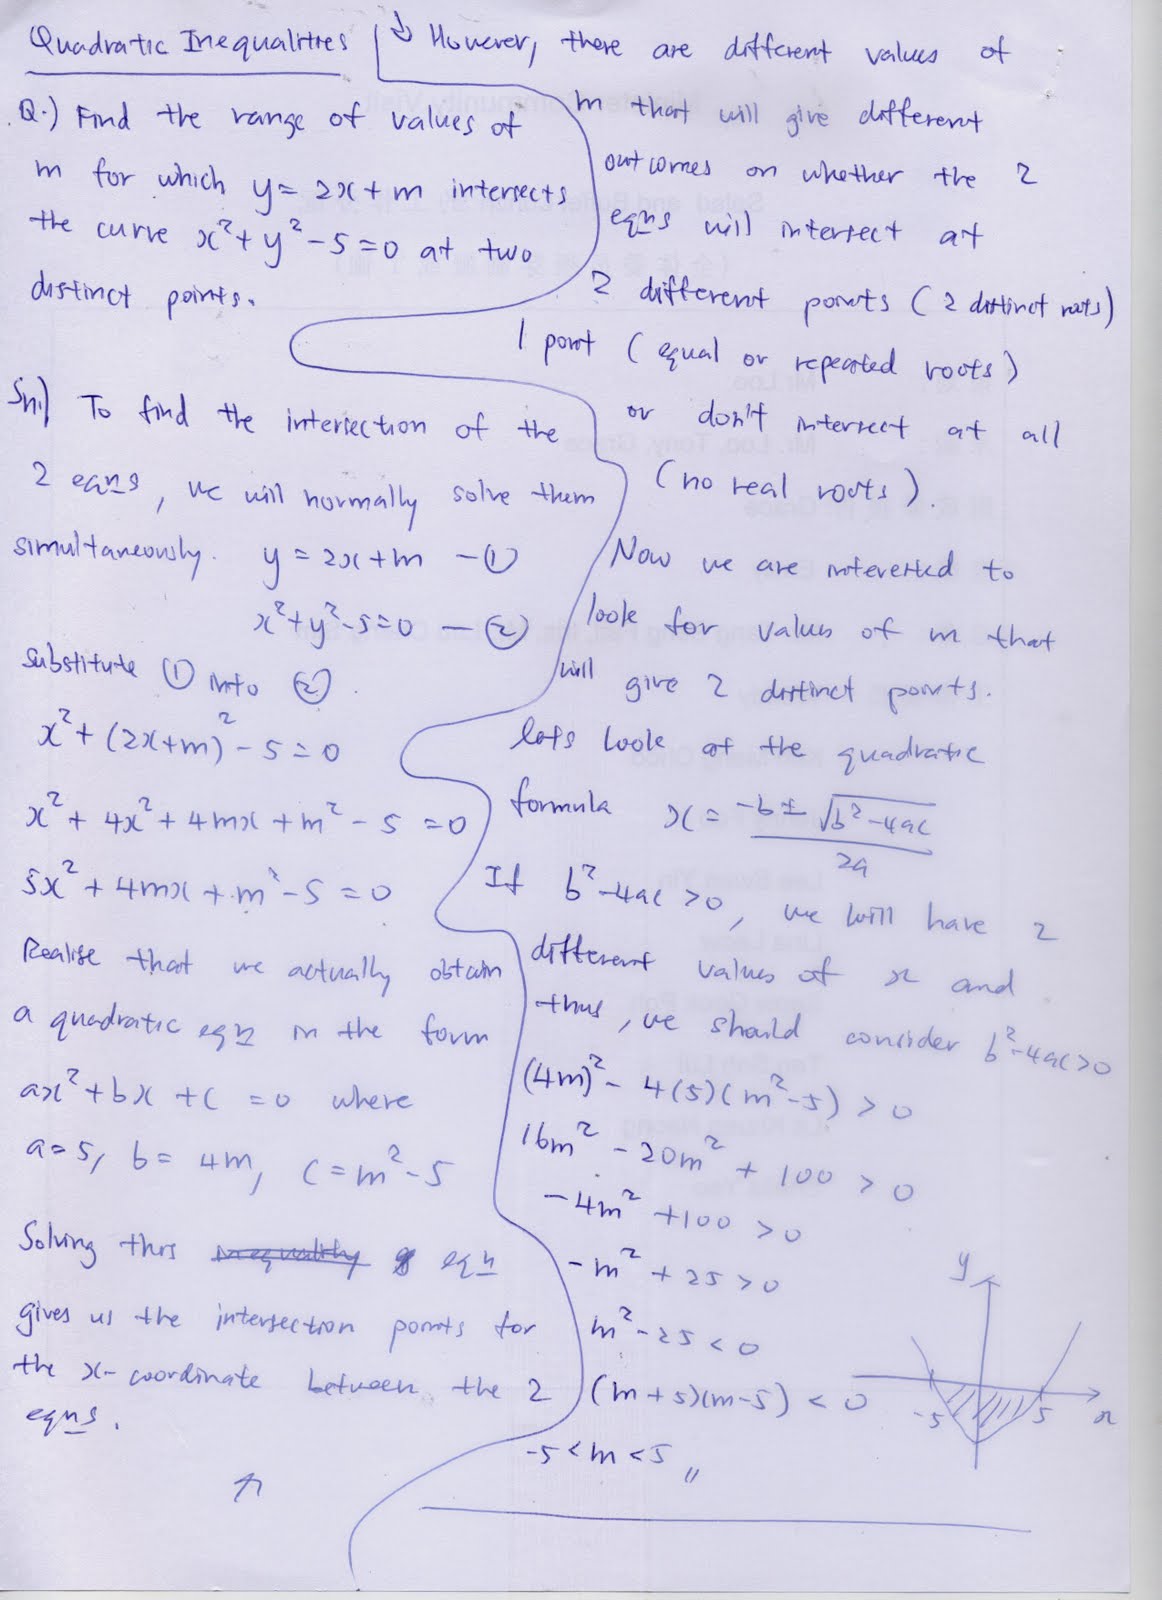 Quadratic Inequalities
Q.) Find the range of values of
m for which y = 2x + m intersects
the curve x² + y² - 5 = 0 at two
distinct points.
Sn.) To find the intersection of the
2 eqns, we will normally solve them
simultaneously. y = 2x + m — ①
x² + y² - 5 = 0 — ②
Substitute ① into ②.
x² + (2x+m)² - 5 = 0
x² + 4x² + 4mx + m² - 5 = 0
5x² + 4mx + m² - 5 = 0
Realise that we actually obtain
a quadratic eqn in the form
ax² + bx + c = 0 where
a = 5, b = 4m, c = m² - 5
Solving this eqn
gives us the intersection points for
the x-coordinate between the 2
eqns.
However, there are different values of
m that will give different
outcomes on whether the 2
eqns will intersect at
2 different points (2 distinct roots)
1 point (equal or repeated roots)
or don't intersect at all
(no real roots).
Now we are interested to
look for values of m that
will give 2 distinct points.
let's look at the quadratic
formula x = (-b ± √(b² - 4ac)) / 2a
If b² - 4ac > 0, we will have 2
different values of x and
thus, we should consider b² - 4ac > 0
(4m)² - 4(5)(m² - 5) > 0
16m² - 20m² + 100 > 0
-4m² + 100 > 0
-m² + 25 > 0
m² - 25 < 0
(m + 5)(m - 5) < 0
-5 < m < 5 "
y
-5
5
x